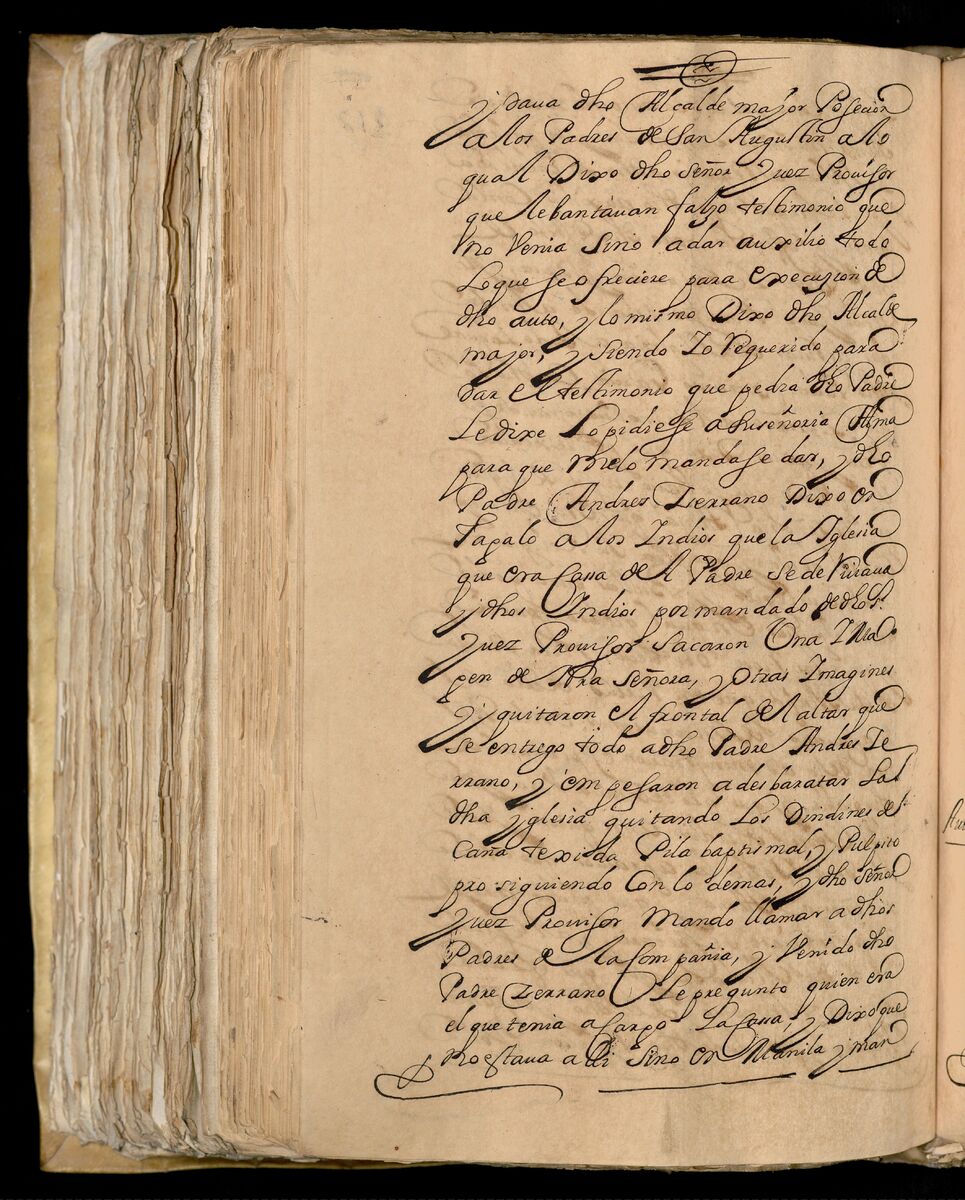 y dava dho Alcalde major Posecion
a los Padres de San Augustin a lo
qual Dixo dho señor Juez Provisor
que lebantavan falzo testimonio que
no Venia sino a dar auxilio todo
Loque se ofreciere para execuzion de
dho auto, y lo mismo Dixo dho Alcalde
major, y siendo Yo requerido para
dar el testimonio que pedia dho Padre
Le dixe Lo pidiese a Suseñoria Illma
para que melo mandase dar, y dho
Padre Andres Zerrano Dixo en
Tagalo a los Indios que la Iglesia
que era Cassa de el Padre se de
y dhos Indios por mandado de dho Sr.
Juez Provisor sacaron Una Ima
gen de Nra Señora, y Otras Imagines
y quitaron el frontal de el altar que
se entrego todo a dho Padre Andres Ze
rrano, y empesaron a desbaratar La
dha yglesia quitando Los Dindines de
Caña texida Pila baptismal, y Pulpito
prosiguiendo Con lo demas, y dho señor
Juez Provisor Mando llamar a dhos
Padres de la Compañia, y Venido dho
Padre Zerrano Le pregunto quien era
el que tenia a Cargo La Cassa, y Dixo que
no estava alli sino en Manila y man